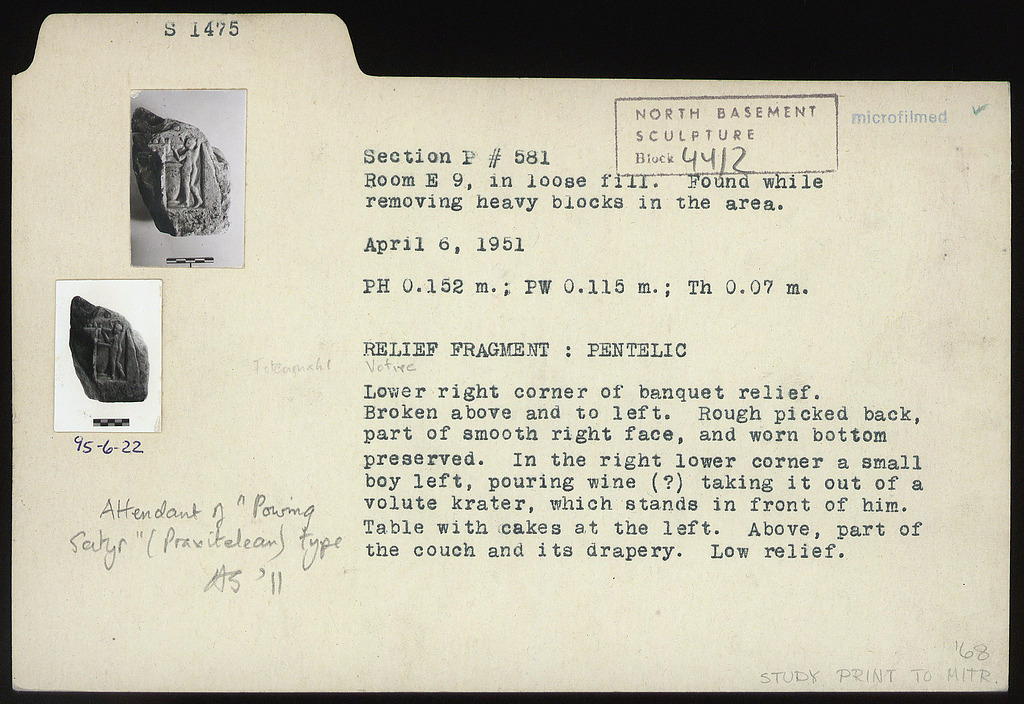 S 1475
NORTH BASEMENT
SCULPTURE
Block 44/2
microfilmed
Section P # 581
Room E 9, in loose fill. Found while
removing heavy blocks in the area.
April 6, 1951
PH 0.152 m.; PW 0.115 m.; Th 0.07 m.
RELIEF FRAGMENT : PENTELIC
Votive
Lower right corner of banquet relief.
Broken above and to left. Rough picked back,
part of smooth right face, and worn bottom
preserved. In the right lower corner a small
boy left, pouring wine (?) taking it out of a
volute krater, which stands in front of him.
Table with cakes at the left. Above, part of
the couch and its drapery. Low relief.
95-6-22
Attendant of "Pouring
Satyr" (Praxitelean) type
AS '11
'68
STUDY PRINT TO MITR.